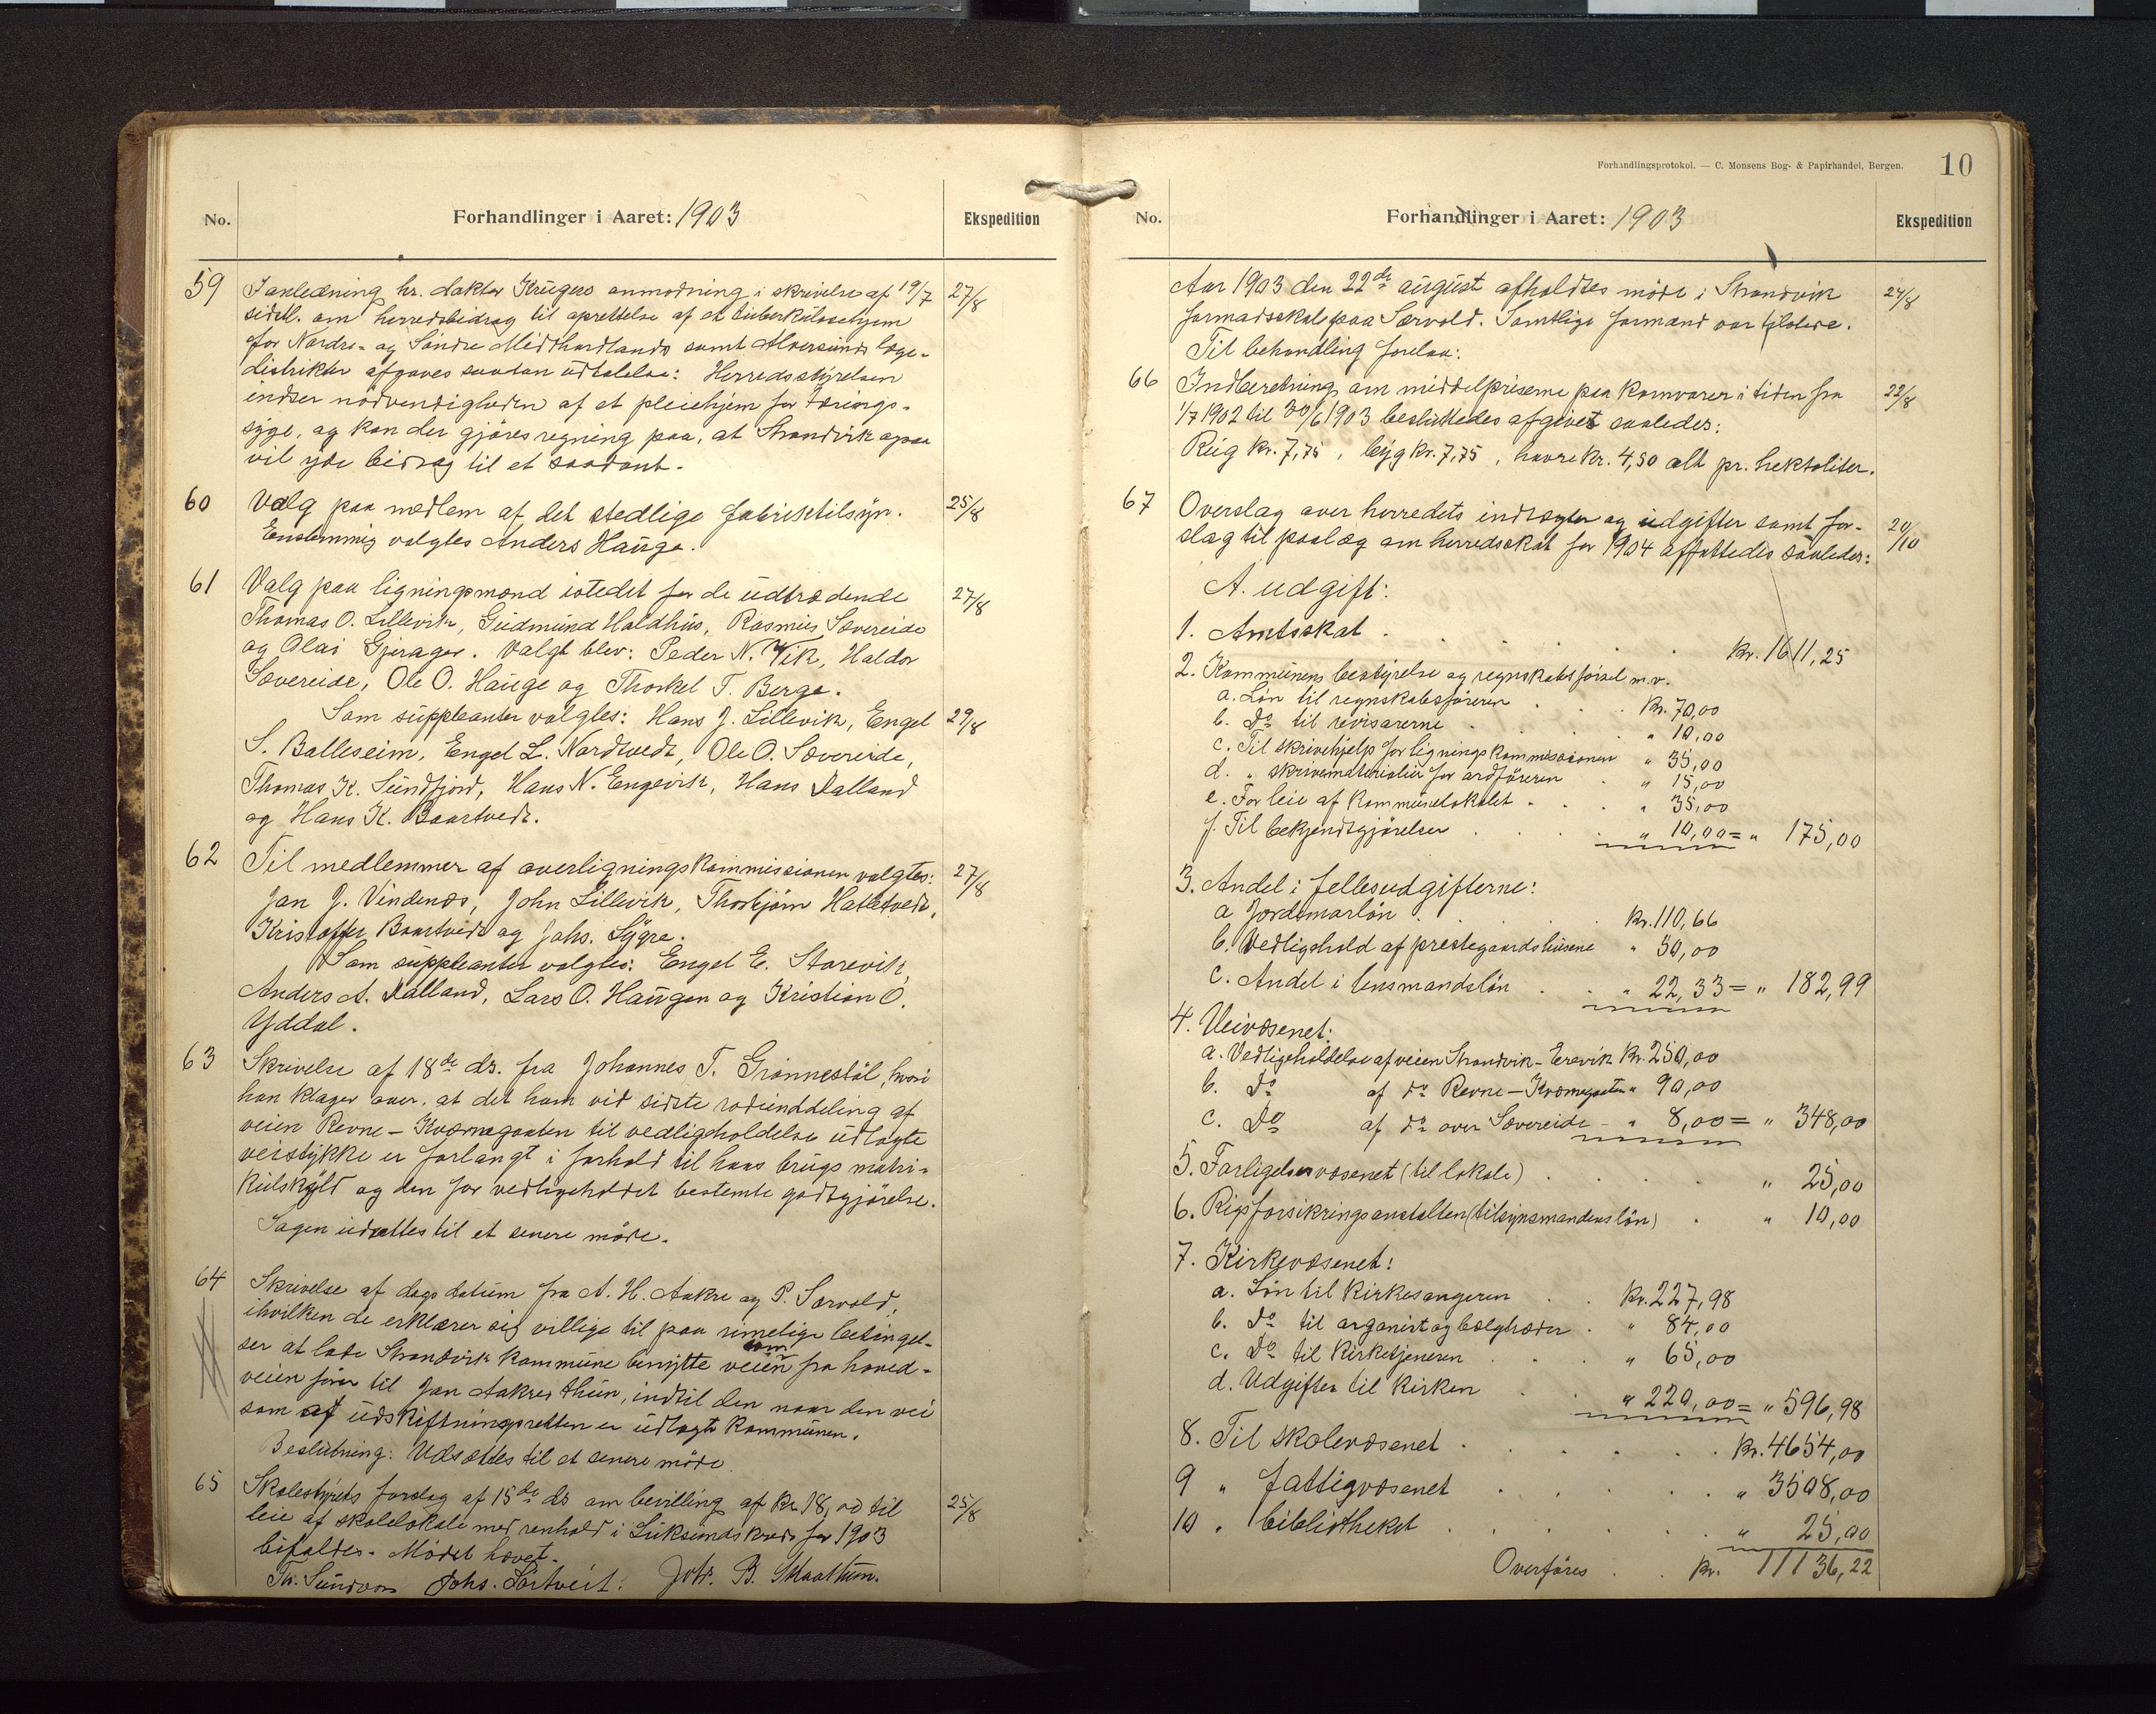 No.
Forhandlinger i Aaret: 1903
Ekspedition
59
I anledning hr. doktor Krügers anmodning i skrivelse af 19/7
27/8
sidstl. om herredsbidrag til oprettelse af et tuberkulosehjem
for Nordre- og Søndre Midthordlands samt Alversunds læge-
distrikter afgaves saadan udtalelse: Herredsstyrelsen
indser nødvendigheden af et pleiehjem for tærings-
syge, og kan der gjøres regning paa, at Strandvik ogsaa
vil yde bidrag til et saadant.
60
Valg paa medlem af det stedlige fabriktilsyn.
25/8
Enstemmig valgtes Anders Hauge.
61
Valg paa ligningsmænd istedet for de udtrædende
27/8
Thomas O. Lillevik, Gudmund Haldhus, Rasmus Sævereide
og Olai Gjerager. Valgt blev: Peder N. Vik, Haldor
Sævereide, Ole O. Hauge og Thorkel T. Berge.
Som suppleanter valgtes: Hans J. Lillevik, Engel
29/8
S. Balleseim, Engel L. Nordtvedt, Ole O. Sævereide,
Thomas K. Sundfjord, Hans N. Engevik, Hans Dalland
og Hans K. Baartvedt.
62
Til medlemmer af overligningskommissionen valgtes:
27/8
Jan J. Vindenæs, John Lillevik, Thorbjørn Hatletvedt,
Kristoffer Baartvedt og Johs. Lygre.
Som suppleanter valgtes: Engel E. Storevik,
Anders A. Dalland, Lars O. Haugen og Kristian O.
Yddal.
63
Skrivelse af 18de ds. fra Johannes T. Grønnestøl, hvori
han klager over, at det ham vid sidste rodeinddeling af
veien Revne - Kværnegaaten til vedligeholdelse udlagte
veistykke er forlangt i forhold til hans brugs matri-
kulskyld og den for vedligeholdet bestemte godtgjørelse.
Sagen udsættes til et senere møde.
64
Skrivelse af dags datum fra A. H. Aakre og P. Særvold,
ihvilken de erklærer sig villige til paa rimelige betingel-
ser at lade Strandvik kommune benytte veien som fra hoved-
veien fører til Jan Aakres thun, indtil den naar den vei
som af udskiftningsretten er udlagt kommunen.
Beslutning: Udsættes til et senere møde.
65
Skolestyrets forslag af 15de ds om bevilling af kr. 18,00 til
25/8
leie af skolelokale med renhold i Luksunds kreds for 1903
bifaldes. Mødet hævet.
Th. Sundvor Johs. Sørtveit. Joh. B. Skaathun.
Forhandlingsprotokol. — C. Monsens Bog- & Papirhandel, Bergen.
10
No.
Forhandlinger i Aaret: 1903
Ekspedition
Aar 1903 den 22de august afholdtes møde i Strandvik
24/8
formandskab paa Særvold. Samtlige formænd var tilstede.
Til behandling forelaa:
66
Indberetning om middelpriserne paa kornvarer i tiden fra
22/8
1/7 1902 til 30/6 1903 besluttedes afgivet saaledes:
Rug kr. 7,75, byg kr. 7,75, havre kr. 4,50 alt pr. hektoliter.
67
Overslag over herredets indtægter og udgifter samt for-
20/10
slag til paalæg om herredsskat for 1904 affattedes saaledes:
A. udgift:
1. Amtsskat . . . . . kr. 1611,25
2. Kommunens bestyrelse og regnskabsførsel m.v.
a. Løn til regnskabsføreren . . . kr. 70,00
b. Do til revisorerne . . . " 10,00
c. Til skrivehjelp for ligningskommissionen " 35,00
d. " skrivematerialier for ordføreren . " 15,00
e. For leie af kommunelokalet . . . " 35,00
f. Til bekjendtgjørelser . . . . " 10,00 = " 175,00
3. Andel i fellesudgifterne:
a Jordmorløn . . . . . kr. 110,66
b. Vedligehold af prestegaardshusene " 50,00
c. Andel i lensmandsløn . . " 22,33 = " 182,99
4. Veivæsenet:
a. Vedligeholdelse af veien Strandvik - Erevik kr. 250,00
b. Do af do Revne - Kværnegaaten " 90,00
c. Do af do over Sævereide - " 8,00 = " 348,00
5. Forligelsesvæsenet (til lokale) . . . . " 25,00
6. Rigsforsikringsanstalten (tilsynsmandens løn) . " 10,00
7. Kirkevæsenet:
a. Løn til kirkesangeren . . kr. 227,98
b. Do til organist og bælgtræder . " 84,00
c. Do til kirketjeneren . . . " 65,00
d. Udgifter til kirken . . " 220,00 = " 596,98
8. Til skolevæsenet . . . . . . kr. 4654,00
9 " fattigvæsenet . . . . . " 3508,00
10 " bibliotheket . . . . . " 25,00
Overføres . . kr. 11136,22